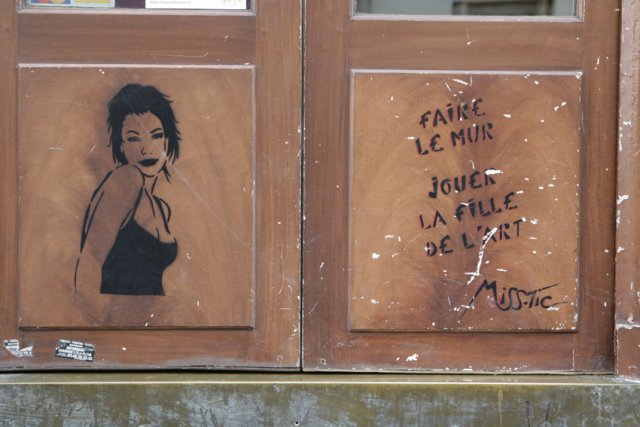 FAIRE
LE MUR
JOUER
LA FILLE
DE L'ART
MISS-TIC